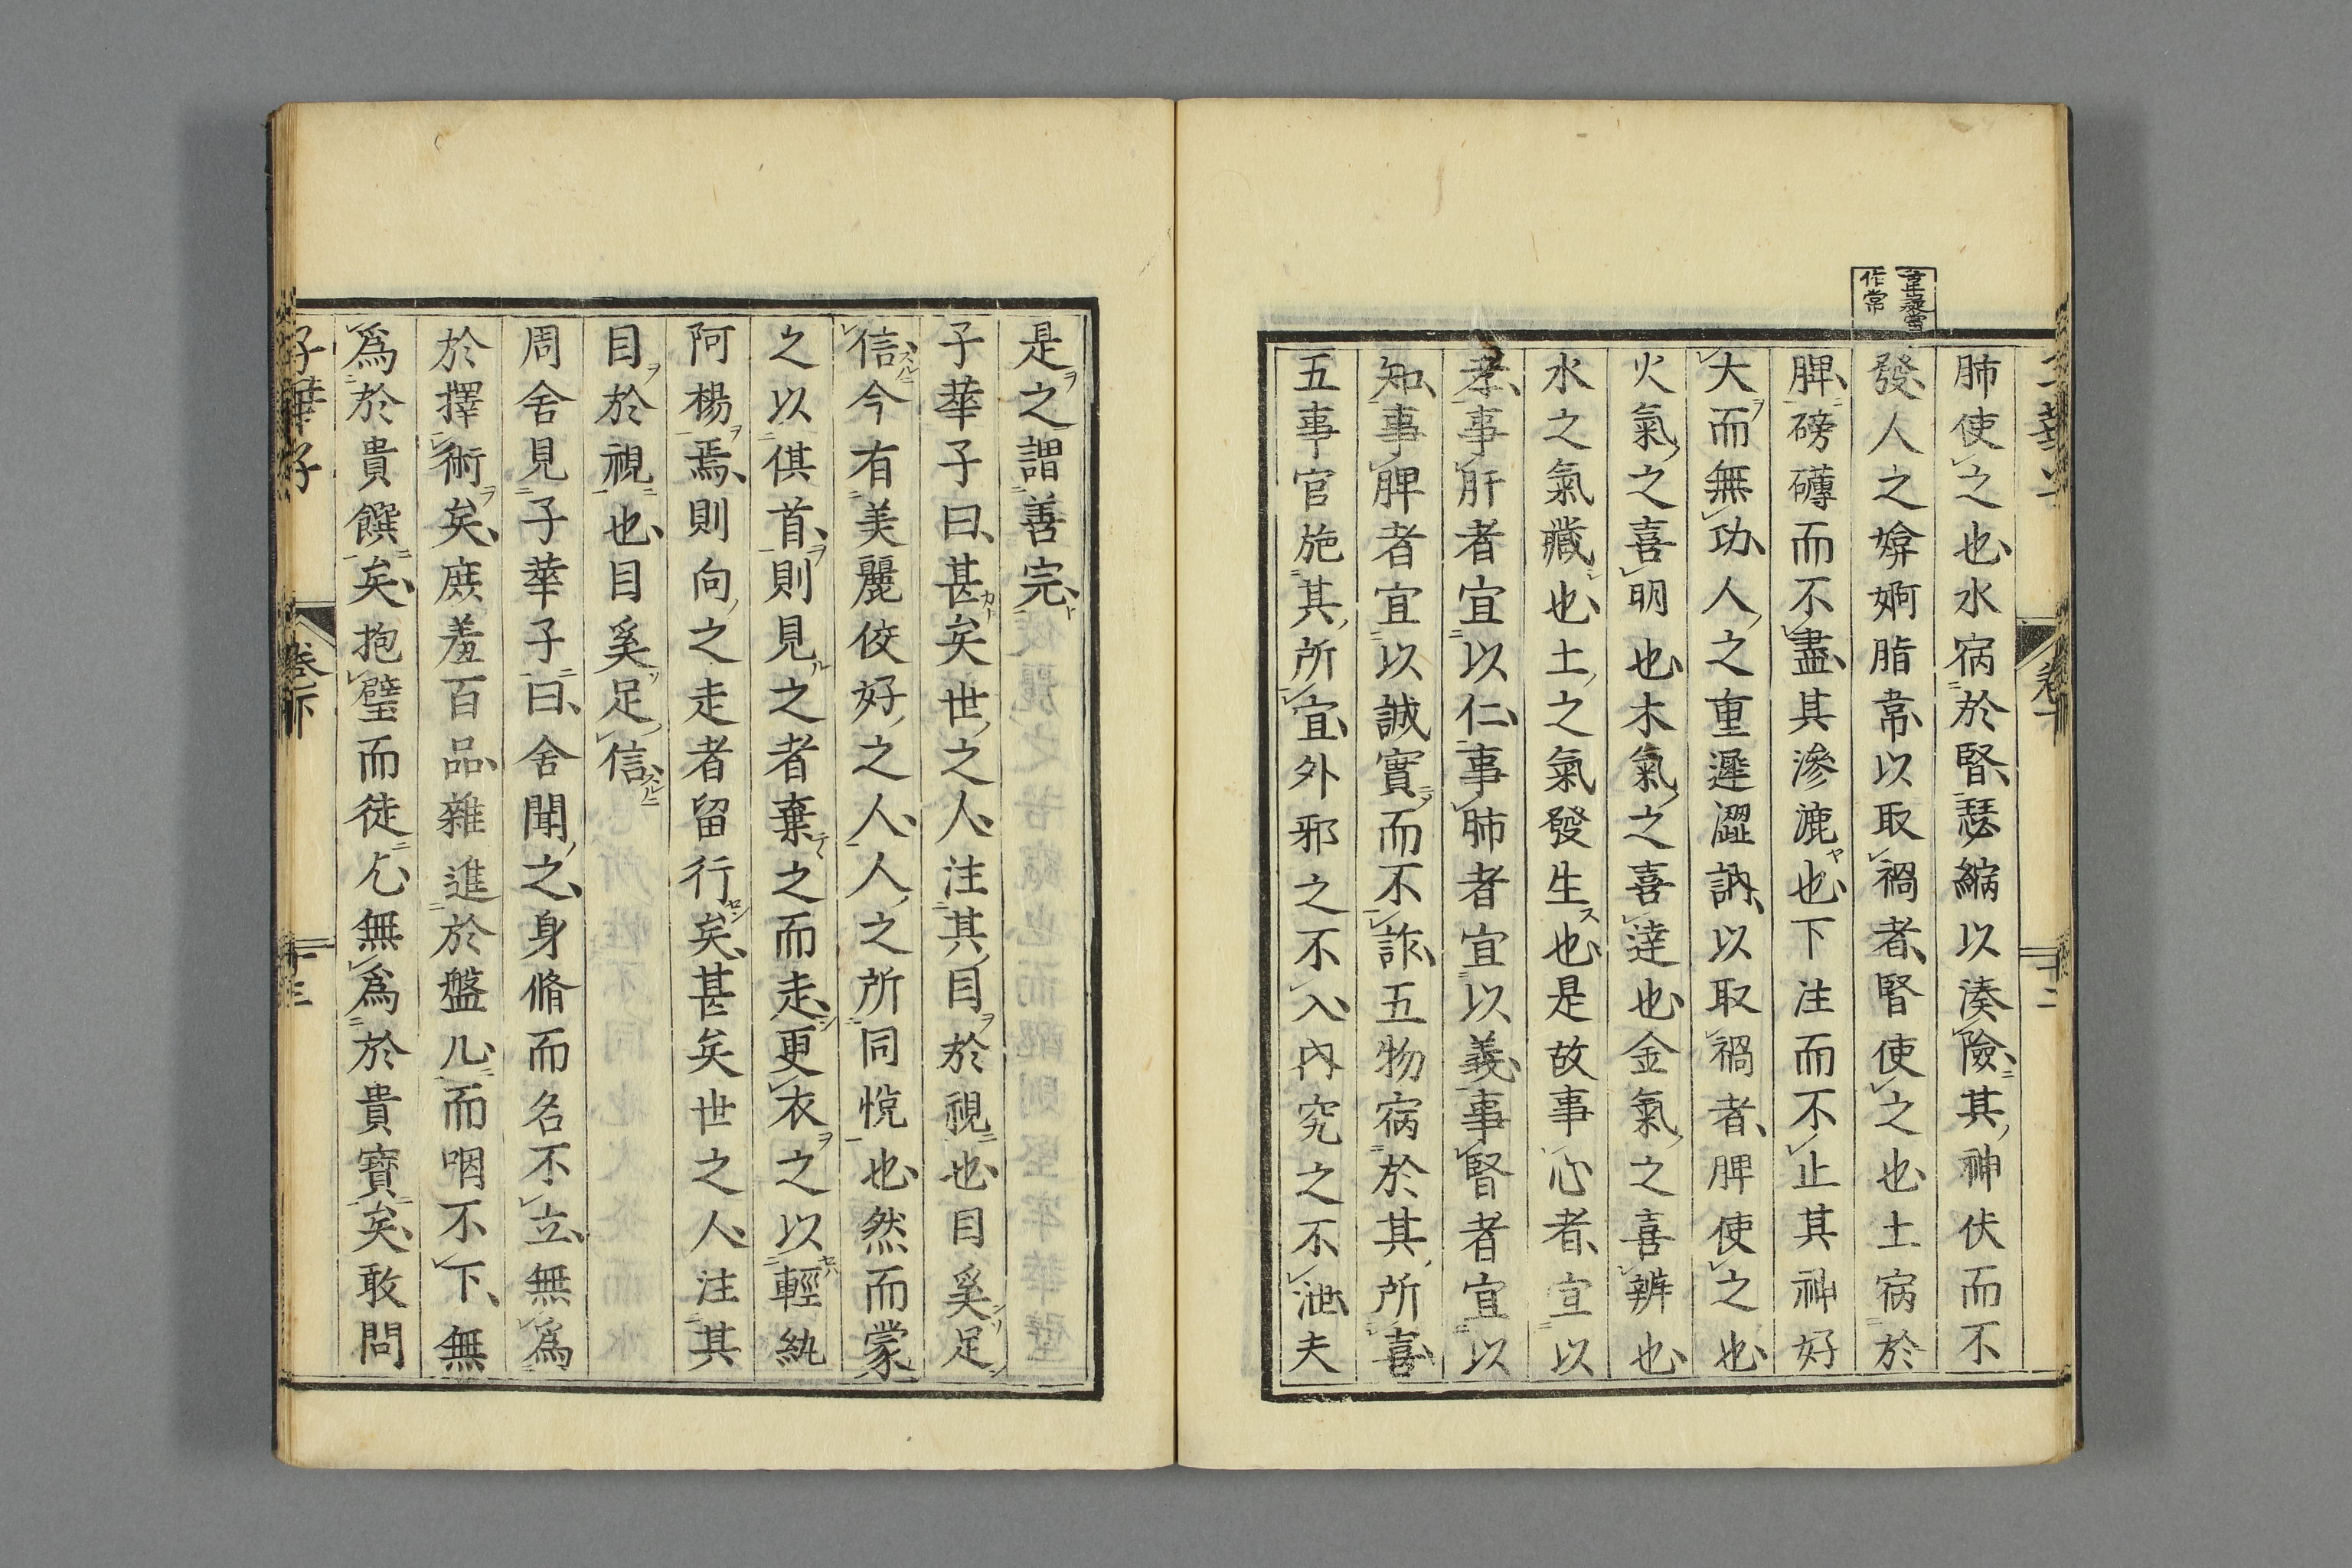 作常
肺使之也水病於腎瑟縮以湊險其神伏而不
發人之媕婀脂韋以取禍者腎使之也土病於
脾磅礴而不盡其滲漉也下注而不止其神好
大而無功人之重遲澀訥以取禍者脾使之也
火氣之喜明也木氣之喜達也金氣之喜辨也
水之氣藏也土之氣發生也是故事心者宜以
孝事肝者宜以仁事肺者宜以義事腎者宜以
知事脾者宜以誠實而不詐五物病於其所喜
五事官施其所宜外邪之不入內究之不泄夫
是之謂善完
子華子曰甚矣世之人注其目於視也目奚足
信今有美麗佼好之人人之所同悅也然而蒙
之以倛首則見之者棄之而走更衣之以輕紈
阿楊焉則向之走者留行矣甚矣世之人注其
目於視也目奚足信
周舍見子華子曰舍聞之身脩而名不立無為
於擇術矣庶羞百品雜進於盤几而咽不下無
為於貴饌矣抱璧而徒乞無為於貴寶矣敢問
子華子 卷下 十三